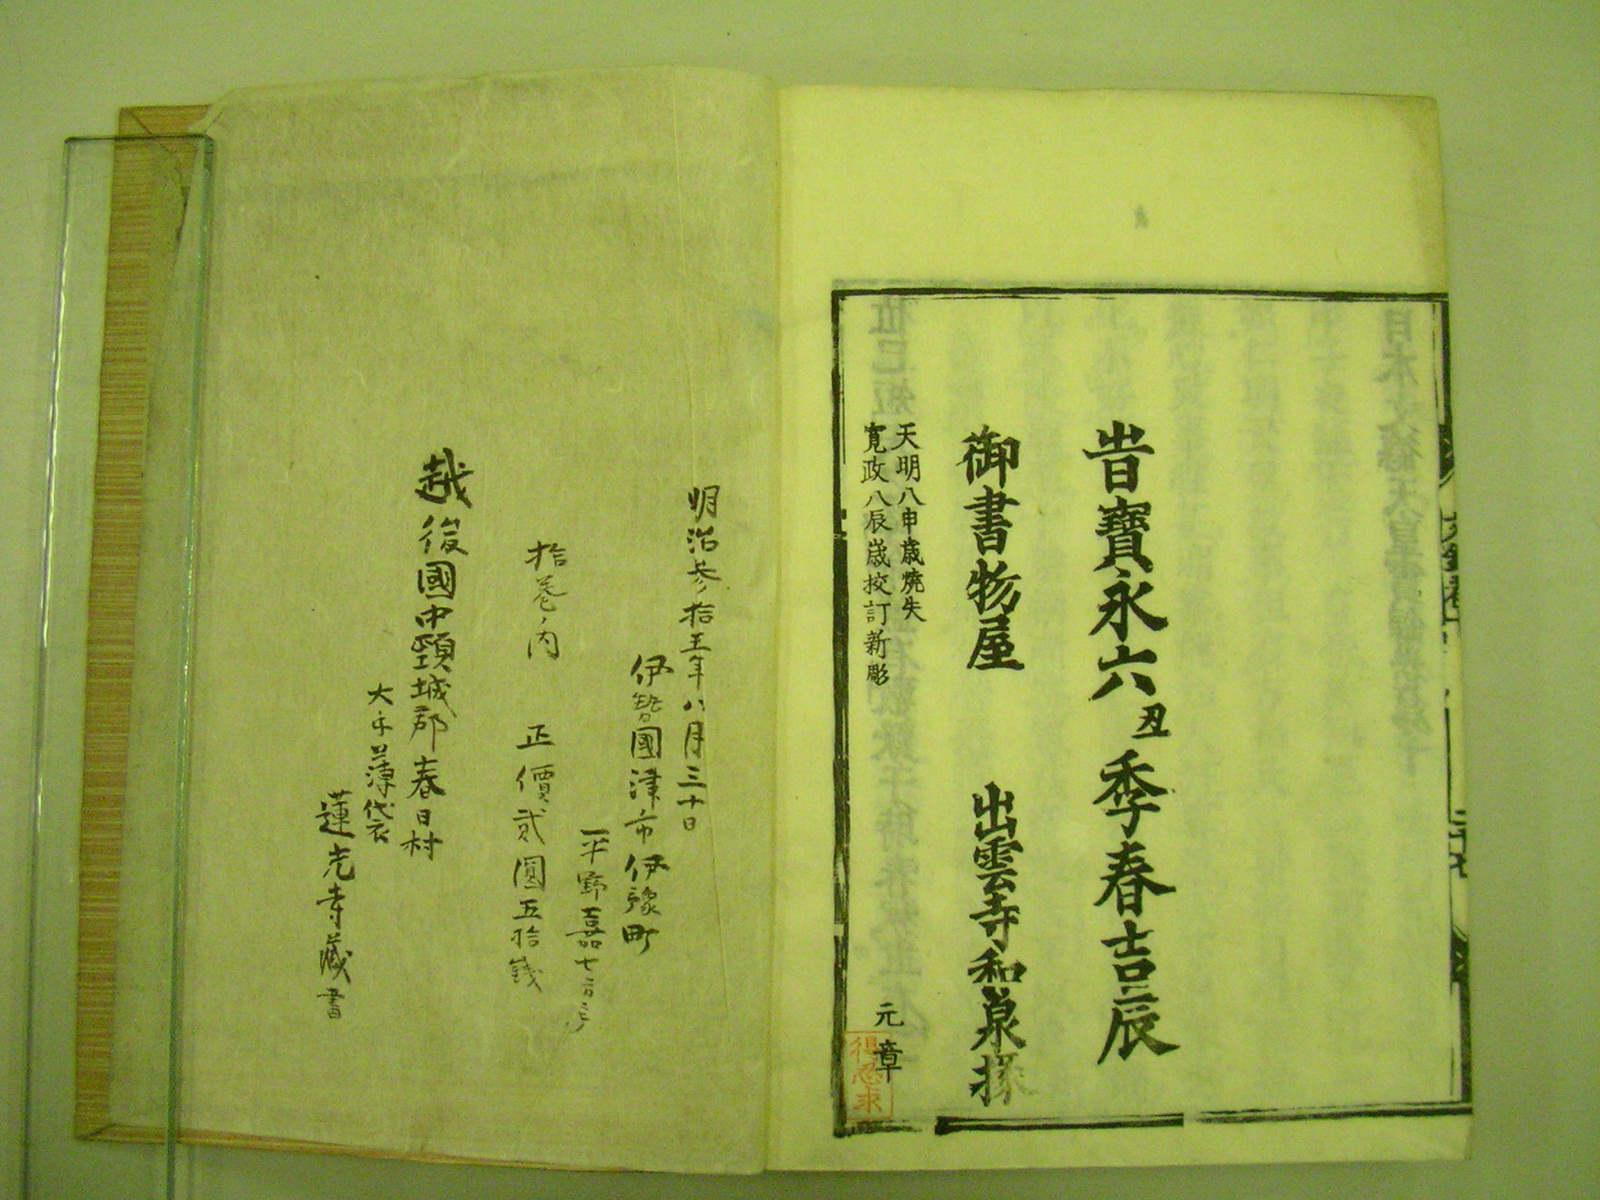 旹寶永六丑季春吉辰
御書物屋 出雲寺和泉掾
天明八申歳燒失
寛政八辰歳挍訂新彫
元章
得忍求
明治参拾五年八月三十日
伊勢國津市伊豫町
平野嘉七
拾巻ノ内 正價貳圓五拾錢
越後國中頸城郡春日村
大字薄袋
蓮光寺藏書